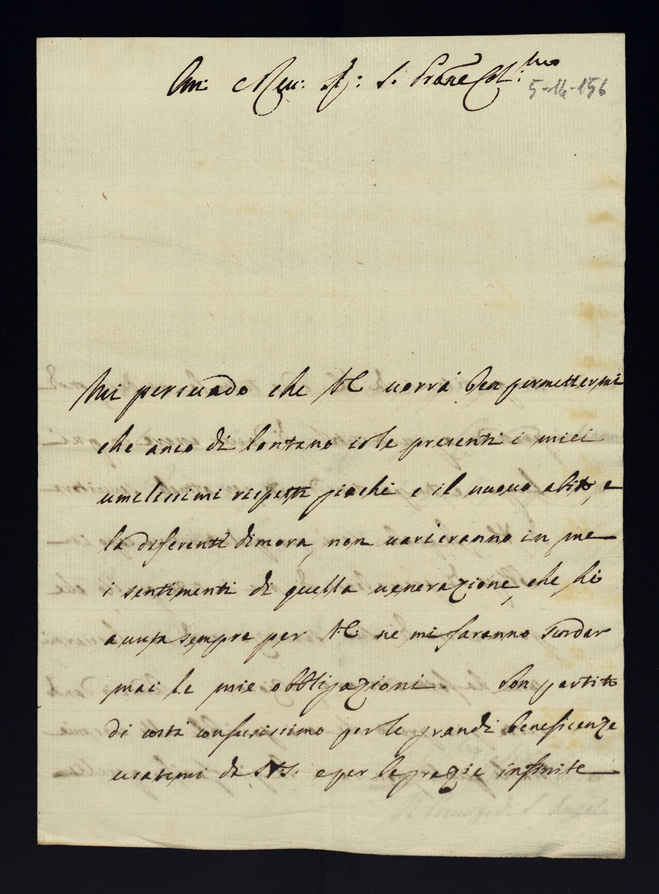 5-14-156
Mi persuado che VE uorrà ben permettermi
che anco di lontano io le presenti i miei
umilissimi rispetti giachè e il nuouo abito, e
la differente dimora, non uarieranno in me
i sentimenti di quella uenerazione, che hò
auuta sempre per VE ne mi faranno scordar
mai le mie obbligazioni. Son partito
di costà confusissimo per le grandi beneficenze
usatemi da e per le grazie infinite